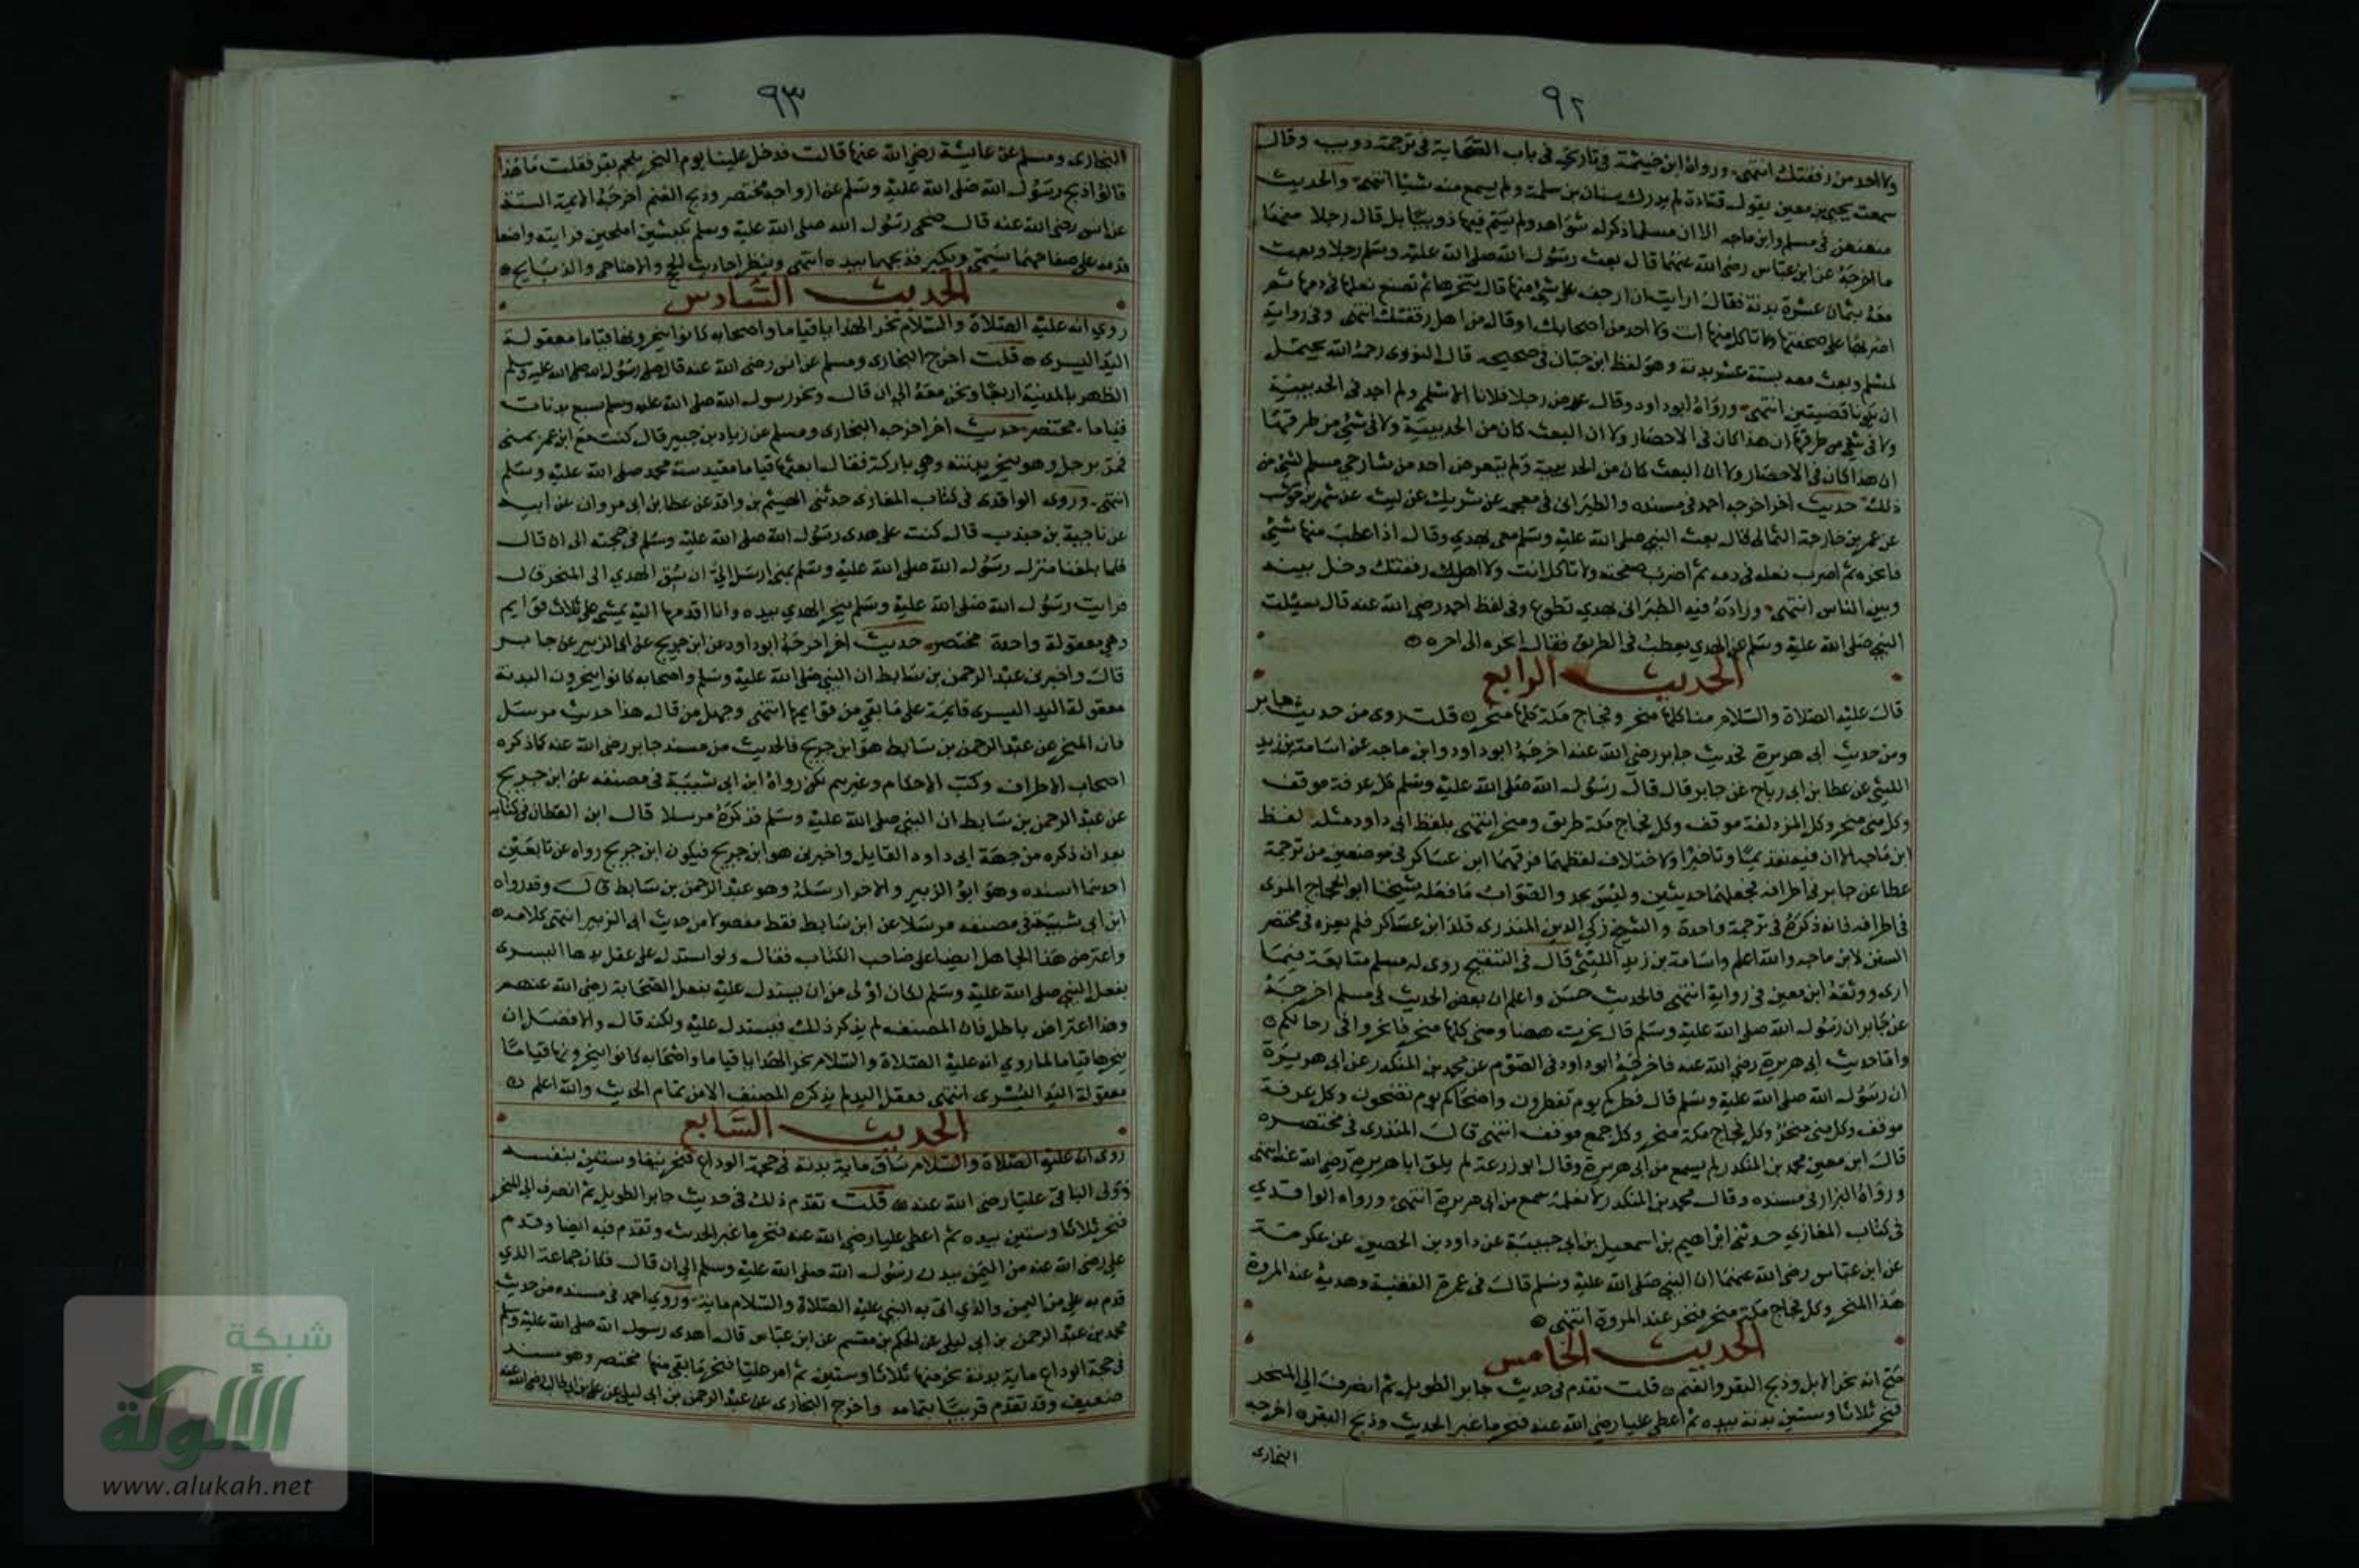 ٩٢
ولا احد من رفقتك انتهى ورواه ابن خيثمة فى تاريخه فى باب الصحابة فى ترجمة ذويب وقال
سمعت يحيى بن معين يقول قتادة لم يدرك سنان بن سلمة ولم يسمع منه شيئا انتهى والحديث
معنعن فى مسلم وابن ماجه الا ان مسلما ذكر له شواهد ولم يسم فيها ذويبا بل قال رجلا منهما
ما اخرجه عن ابن عباس رضى الله عنهما قال بعث رسول الله صلى الله عليه وسلم رجلا وبعث
معه بثمان عشرة بدنة فقال ارايت ان ازحف على شئ منها قال تنحرها ثم تصنع نعلها فى دمها ثم
اضربها على صفحتها ولا تاكل منها انت ولا احد من اصحابك او قال من اهل رفقتك انتهى وفى رواية
لمسلم وبعث معه بستة عشر بدنة وهو لفظ ابن حبان فى صحيحه قال النووى رحمه الله يحتمل
ان يكونا قضيتين انتهى ورواه ابو داود وقال عوض رجلا فلانا الاسلمى ولم اجد فى الحديبية
ولا فى شئ من طرقها ان هذا كان فى الاحصار ولا ان البعث كان من الحديبية ولا فى شئ من طرقهما
ان هذا كان فى الاحصار ولا ان البعث كان من الحديبية ولم يتعرض احد من شارحى مسلم لشئ من
ذلك حديث اخر اخرجه احمد فى مسنده والطبرانى فى معجمه عن شريك عن ليث عن شهر بن حوشب
عن عمر بن خارجة الثمالى قال بعث النبى صلى الله عليه وسلم معى بهدي وقال اذا عطب منها شئ
فانحره ثم اضرب نعله فى دمه ثم اضرب صفحته ولا تاكل انت ولا اهل رفقتك وخل بينه
وبين الناس انتهى وزاد فيه الطبرانى بهدي تطوع وفى لفظ احمد رضى الله عنه قال سئلت
النبى صلى الله عليه وسلم عن الهدي يعطب فى الطريق فقال انحره الى اخره
الحديث الرابع
قال عليه الصلاة والسلام منا كلها منحر وفجاج مكة كلها منحر قلت روى من حديث جابر
ومن حديث ابى هريرة فحديث جابر رضى الله عنه اخرجه ابو داود وابن ماجه عن اسامة بن زيد
الليثى عن عطا بن ابى رباح عن جابر قال قال رسول الله صلى الله عليه وسلم كل عرفة موقف
وكل منى منحر وكل المزدلفة موقف وكل فجاج مكة طريق ومنحر انتهى بلفظ ابى داود مثله لفظ
ابن ماجه الا ان فيه تقديما وتاخيرا ولاختلاف لفظهما فرقهما ابن عساكر فى موضعين من ترجمة
عطا عن جابر فى اطرافه فجعلهما حديثين وليس بجيد والصواب ما فعله شيخنا ابو الحجاج المزى
فى اطرافه فانه ذكره فى ترجمة واحدة والشيخ زكي الدين المنذرى قلد ابن عساكر فلم يعزه فى مختصر
السنن لابن ماجه والله اعلم واسامة بن زيد الليثى قال فى التنقيح روى له مسلم متابعة فيما
ارى ووثقه ابن معين فى رواية انتهى فالحديث حسن واعلم ان بعض الحديث فى مسلم اخرجه
عن جابر ان رسول الله صلى الله عليه وسلم قال نحرت ههنا ومنى كلها منحر فانحروا فى رحالكم
واما حديث ابى هريرة رضى الله عنه فاخرجه ابو داود فى الصوم عن محمد بن المنكدر عن ابى هريرة
ان رسول الله صلى الله عليه وسلم قال فطركم يوم تفطرون واضحاكم يوم تضحون وكل عرفة
موقف وكل منى منحر وكل فجاج مكة منحر وكل جمع موقف انتهى قال المنذرى فى مختصره
قال ابن معين محمد بن المنكدر لم يسمع من ابى هريرة وقال ابو زرعة لم يلق ابا هريرة رضى الله عنه انتهى
ورواه البزار فى مسنده وقال محمد بن المنكدر لا نعلمه سمع من ابى هريرة انتهى ورواه الواقدي
فى كتاب المغازي حدثنى ابراهيم بن اسمعيل بن ابى حبيبة عن داود بن الحصين عن عكرمة
عن ابن عباس رضى الله عنهما ان النبى صلى الله عليه وسلم قال فى عمرة القضية وهديه عند المروة
هذا المنحر وكل فجاج مكة منحر فنحر عند المروة انتهى
الحديث الخامس
صح انه نحر الابل وذبح البقر والغنم قلت تقدم فى حديث جابر الطويل ثم انصرف الى المنحر
فنحر ثلاثا وستين بدنة بيده ثم اعطى عليا رضى الله عنه فنحر ما غبر الحديث وذبح البقره اخرجه
البخارى
٩٣
البخارى ومسلم عن عايشة رضى الله عنها قالت فدخل علينا يوم النحر بلحم بقر فقلت ما هذا
قالوا ذبح رسول الله صلى الله عليه وسلم عن ازواجه مختصر وذبح الغنم اخرجه الايمة الستة
عن انس رضى الله عنه قال ضحى رسول الله صلى الله عليه وسلم بكبشين املحين فرايته واضعا
قدمه على صفاحهما يسمى ويكبر فذبحهما بيده انتهى وينظر احاديث الحج والاضاحى والذبايح
الحديث السادس
روي انه عليه الصلاة والسلام نحر الهدايا قياما واصحابه كانوا ينحرونها قياما معقولة
اليد اليسرى قلت اخرج البخارى ومسلم عن انس رضى الله عنه قال صلى رسول الله صلى الله عليه وسلم
الظهر بالمدينة اربعا ونحن معه الى ان قال ونحر رسول الله صلى الله عليه وسلم سبع بدنات
قياما مختصر حديث اخر اخرجه البخارى ومسلم عن زياد بن جبير قال كنت مع ابن عمر بمنى
فمر برجل وهو ينحر بدنته وهي باركة فقال ابعثها قياما مقيدة سنة محمد صلى الله عليه وسلم
انتهى وروى الواقدى فى كتاب المغازى حدثنى الهيثم بن واقد عن عطا بن ابى مروان عن ابيه
عن ناجية بن جندب قال كنت على هدى رسول الله صلى الله عليه وسلم فى حجته الى ان قال
فلما بلغنا منزل رسول الله صلى الله عليه وسلم بمنى ارسل الي ان سق الهدي الى المنحر قال
فرايت رسول الله صلى الله عليه وسلم ينحر الهدي بيده وانا اقدمها اليه تمشى على ثلاث قوايم
وهي معقولة واحدة مختصر حديث اخر اخرجه ابو داود عن ابن جريج عن ابى الزبير عن جابر
قال واخبرنى عبد الرحمن بن سابط ان النبى صلى الله عليه وسلم واصحابه كانوا ينحرون البدنة
معقولة اليد اليسرى قايمة على ما بقي من قوايمها انتهى وجهل من قال هذا حديث مرسل
فان المخبر عن عبد الرحمن بن سابط هو ابن جريج فالحديث من مسند جابر رضى الله عنه كما ذكره
اصحاب الاطراف وكتب الاحكام وغيرهم لكن رواه ابن ابى شيبة فى مصنفه عن ابن جريج
عن عبد الرحمن بن سابط ان النبى صلى الله عليه وسلم فذكره مرسلا قال ابن القطان فى كتابه
بعد ان ذكره من جهة ابى داود القايل واخبرنى هو ابن جريج فيكون ابن جريج رواه عن تابعين
احدهما اسنده وهو ابو الزبير والاخر ارسله وهو عبد الرحمن بن سابط قال وقد رواه
ابن ابى شيبة فى مصنفه مرسلا عن ابن سابط فقط مفصولا من حديث ابى الزبير انتهى كلامه
واعترض هذا الجاهل ايضا على صاحب الكتاب فقال ولو استدل على عقل يدها اليسرى
بفعل النبى صلى الله عليه وسلم لكان اولى من ان يستدل عليه بفعل الصحابة رضى الله عنهم
وهذا اعتراض باطل فان المصنف لم يذكر ذلك ليستدل عليه ولكنه قال والافضل ان
ينحرها قياما لما روي انه عليه الصلاة والسلام نحر الهدايا قياما واصحابه كانوا ينحرونها قياما
معقولة اليد اليسرى انتهى فعقل اليد لم يذكره المصنف الا من تمام الحديث والله اعلم
الحديث السابع
روى انه عليه الصلاة والسلام ساق ماية بدنة فى حجة الوداع فنحر نيفا وستين بنفسه
وولى الباقى عليا رضى الله عنه قلت تقدم ذلك فى حديث جابر الطويل ثم انصرف الى المنحر
فنحر ثلاثا وستين بيده ثم اعطى عليا رضى الله عنه فنحر ما غبر الحديث وتقدم فيه ايضا وقدم
على رضى الله عنه من اليمن ببدن رسول الله صلى الله عليه وسلم الى ان قال فكان جماعة الذي
قدم به على من اليمن والذي اتى به النبى عليه الصلاة والسلام ماية وروي احمد فى مسنده من حديث
محمد بن عبد الرحمن بن ابى ليلى عن الحكم بن مقسم عن ابن عباس قال اهدى رسول الله صلى الله عليه وسلم
فى حجة الوداع ماية بدنة نحر منها ثلاثا وستين ثم امر عليا فنحر ما بقى منها مختصر وهو مسند
ضعيف وقد تقدم قريبا بتمامه واخرج البخارى عن عبد الرحمن بن ابى ليلى عن على بن ابى طالب رضى الله عنه
شبكة
الألوكة
www.alukah.net